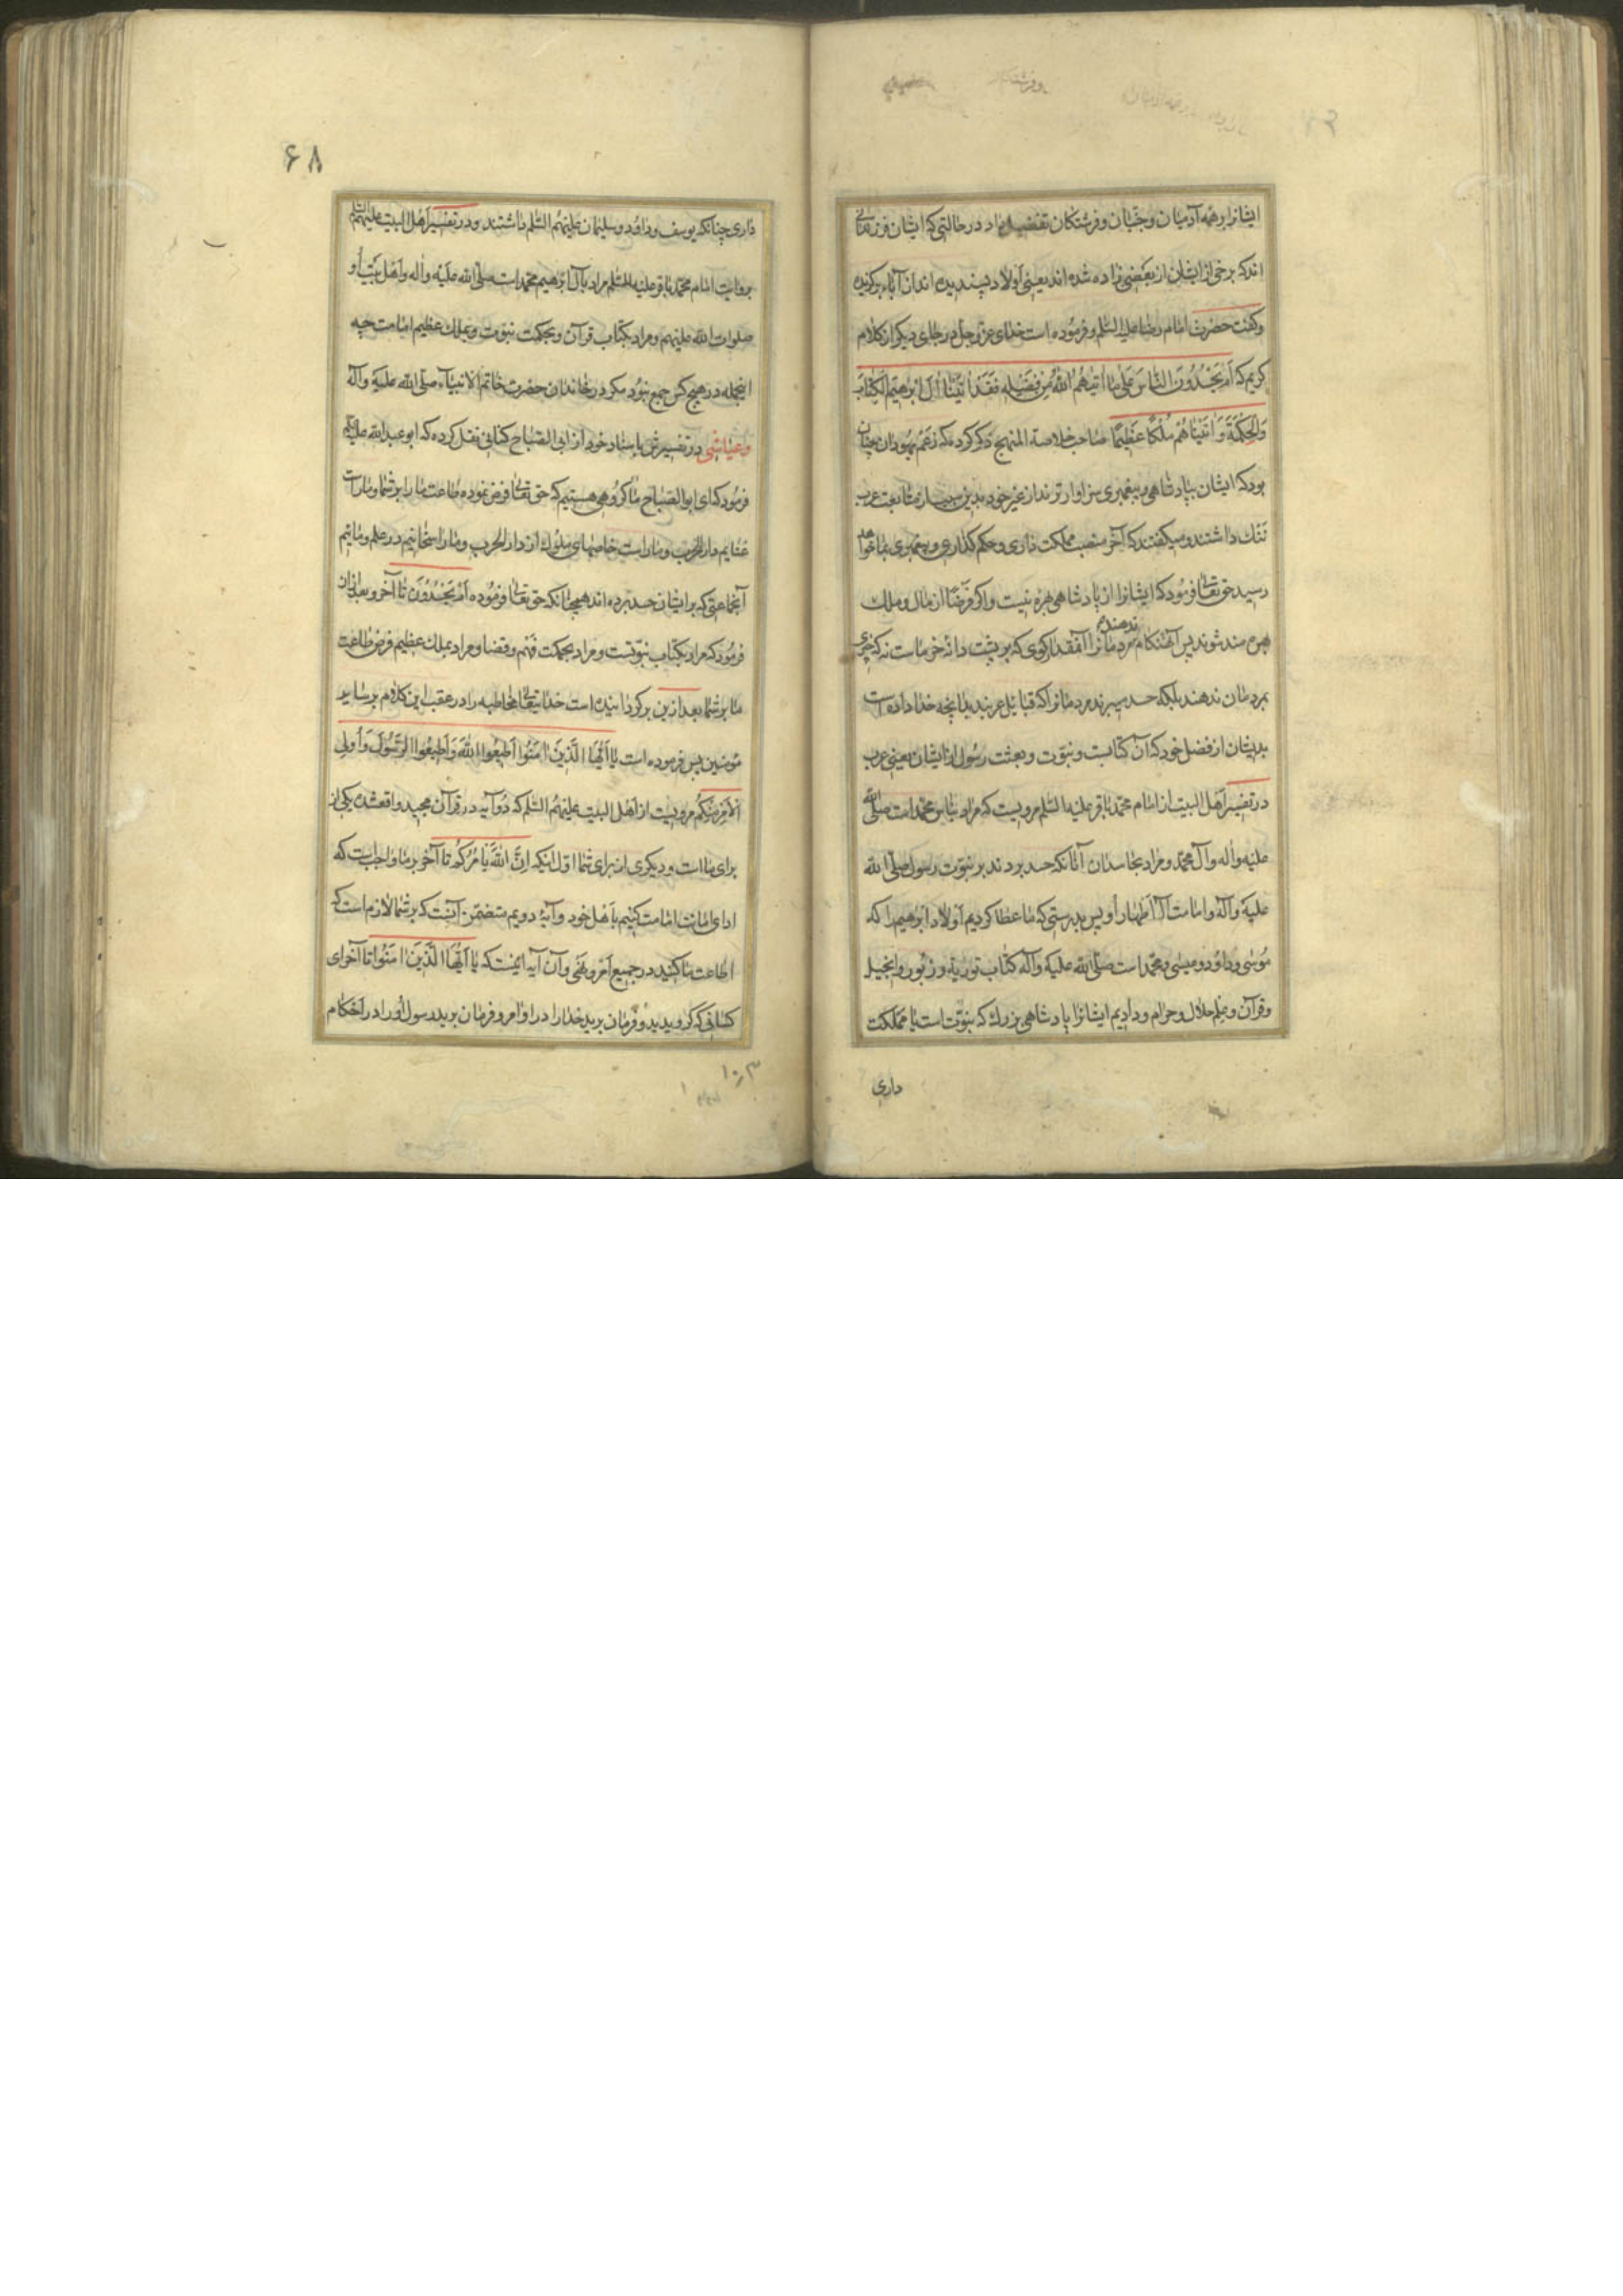 ایشانرا برهمه آدمیان و جنیان و فرشتکان تفضیل داد در حالتی که ایشان فرزندانی
اند که برخی از ایشان از بعضی زاده شده اند یعنی اولاد پسندیده اند از آباء برکزیده
و کفت حضرت امام رضا علیه السّلم و فرموده است خدای عز و جل در جای دیکر از کلام
کریم که اَم یَحْسُدُونَ النّاسَ عَلی ما اتیهُمُ اللهُ مِن فَضْلِه فَقَدْ اتَیْنا الَ ابْرهیمَ الْکِتابَ
وَالْحِکْمَةَ وَ اتَیْناهُمْ مُلْکًا عَظیمًا صاحب خلاصة المنهج ذکر کرده که زعم یهودان چنان
بود که ایشان بپادشاهی و پیغمبری سزاوارترند از غیر خود بدین سبب از متابعت عرب
ننك داشتند و میکفتند که آخر منصب مملکت داری و حکم کذاری و پیغمبری بما خواهد
رسید حق تعالی فرمود که ایشانرا از پادشاهی بهره نیست و اکر فرضًا از مال و ملك
بهره مند شوند پس آنهنکام ندهند مردمانرا آنمقدار کوی که بر پشت دانه خرماست نه که چیزی
بمردمان ندهند بلکه حسد میبرند مردمانرا که قبائل عربند بدانچه خدا داده است
بدیشان از فضل خود که آن کتابست و نبوّت و بعثت رسول از ایشان یعنی عرب
در تفسیر اهل البیت از امام محمّد باقر علیه السّلم مرویست که مراد بناس محمّد است صلّی الله
علیه و آله و آل محمّد و مراد بحاسدان آنانکه حسد بردند بر نبوّت رسول صلّی الله
علیه و آله و امامت آل اطهار او پس بدرستی که ما عطا کردیم اولاد ابرهیم را که
موسی و داود و عیسی و محمّد است صلّی الله علیه و آله کتاب توریة و زبور و انجیل
و قرآن و علم حلال و حرام و دادیم ایشانرا پادشاهی بزرك که نبوّت است با مملکت
داری
۶۸
داری چنانکه یوسف و داود و سلیمان علیهم السّلم داشتند و در تفسیر اهل البیت علیهم السّلم
بروایت امام محمّد باقر علیه السّلم مراد بآل ابرهیم محمّد است صلّی الله علیه و اله و اهل بیت او
صلوات الله علیهم و مراد بکتاب قرآن و بحکمت نبوّت و بملك عظیم امامت چه
اینجمله در هیچ کس جمع نبود مکر در خاندان حضرت خاتم الانبیاء صلّی الله علیه و آله
و عیاشی در تفسیرش باسناد خود از ابی الصباح کنانی نقل کرده که ابو عبد الله علیه السلم
فرمود که ای ابو الصباح ما کروهی هستیم که حق تعالی فرض نموده طاعت ما را بر شما و ماراست
غنایم دار الحرب و ماراست خاصهای ملوك از دار الحرب و ما راسخانیم در علم و مائیم
آنجماعتی که بر ایشان حسد برده اند همچنانکه حق تعالی فرموده اَمْ یَحْسُدُونَ تا آخر و بعد از ان
فرمود که مراد بکتاب نبوّتست و مراد بحکمت فهم و قضا و مراد بملك عظیم فرض طاعت
ما بر شما بعد ازین برکردانیده است خدایتعالی مخاطبه را در عقب این کلام بر سایر
مؤمنین پس فرموده است یا اَیُّهَا الَّذینَ امَنُوا اَطیعُوا اللهَ وَ اَطیعُوا الرَّسُولَ وَ اُولِی
الْاَمْرِ مِنْکُمْ مرویست از اهل البیت علیهم السّلم که دو آیه در قرآن مجید واقعشده یکی از
برای ما است و دیکری از برای شما اول اینکه اِنَّ اللهَ یَامُرُکُمْ تا آخر بر ما واجبست که
ادای امانت امامت کنیم باهل خود و آیه دویم متضمّن آنست که بر شما لازم است که
اطاعت ما کنید در جمیع امر و نهی و آن آیه اینست که یا اَیُّهَا الَّذینَ امَنُوا تا آخر ای
کسانی که کرویدید و فرمان برید خدا را در اوامر و فرمان برید رسول او را در احکام